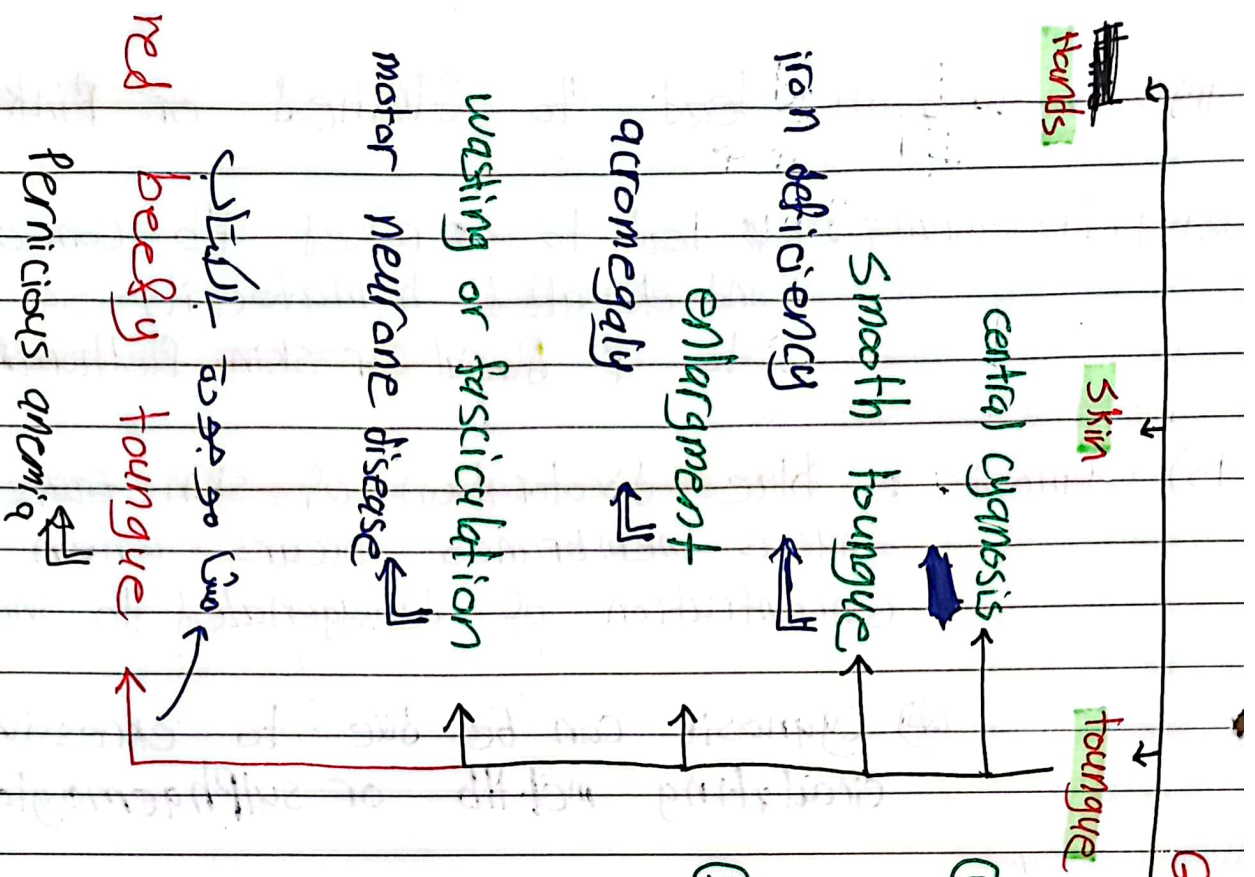 Hands
Skin
toungue
central cyanosis
smooth toungue
iron deficiency
enlargment
acromegaly
wasting or fasciculation
motor neurone disease
red beefy toungue
Pernicious anemia